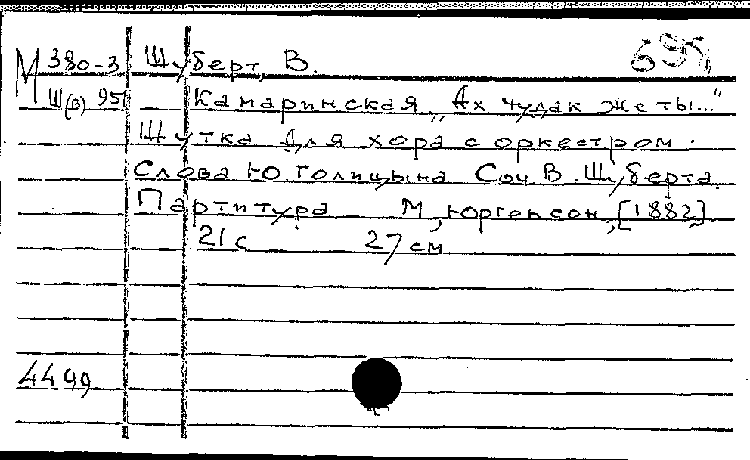 М 380-3 Шуберт, В.
Ш(В) 951 Камаринская „Ах чудак же ты..."
Шутка для хора с оркестром.
Слова Ю. Голицына Соч. В. Шуберта.
Партитура М, Юргенсон, [1882]
21 с 27 см
4499